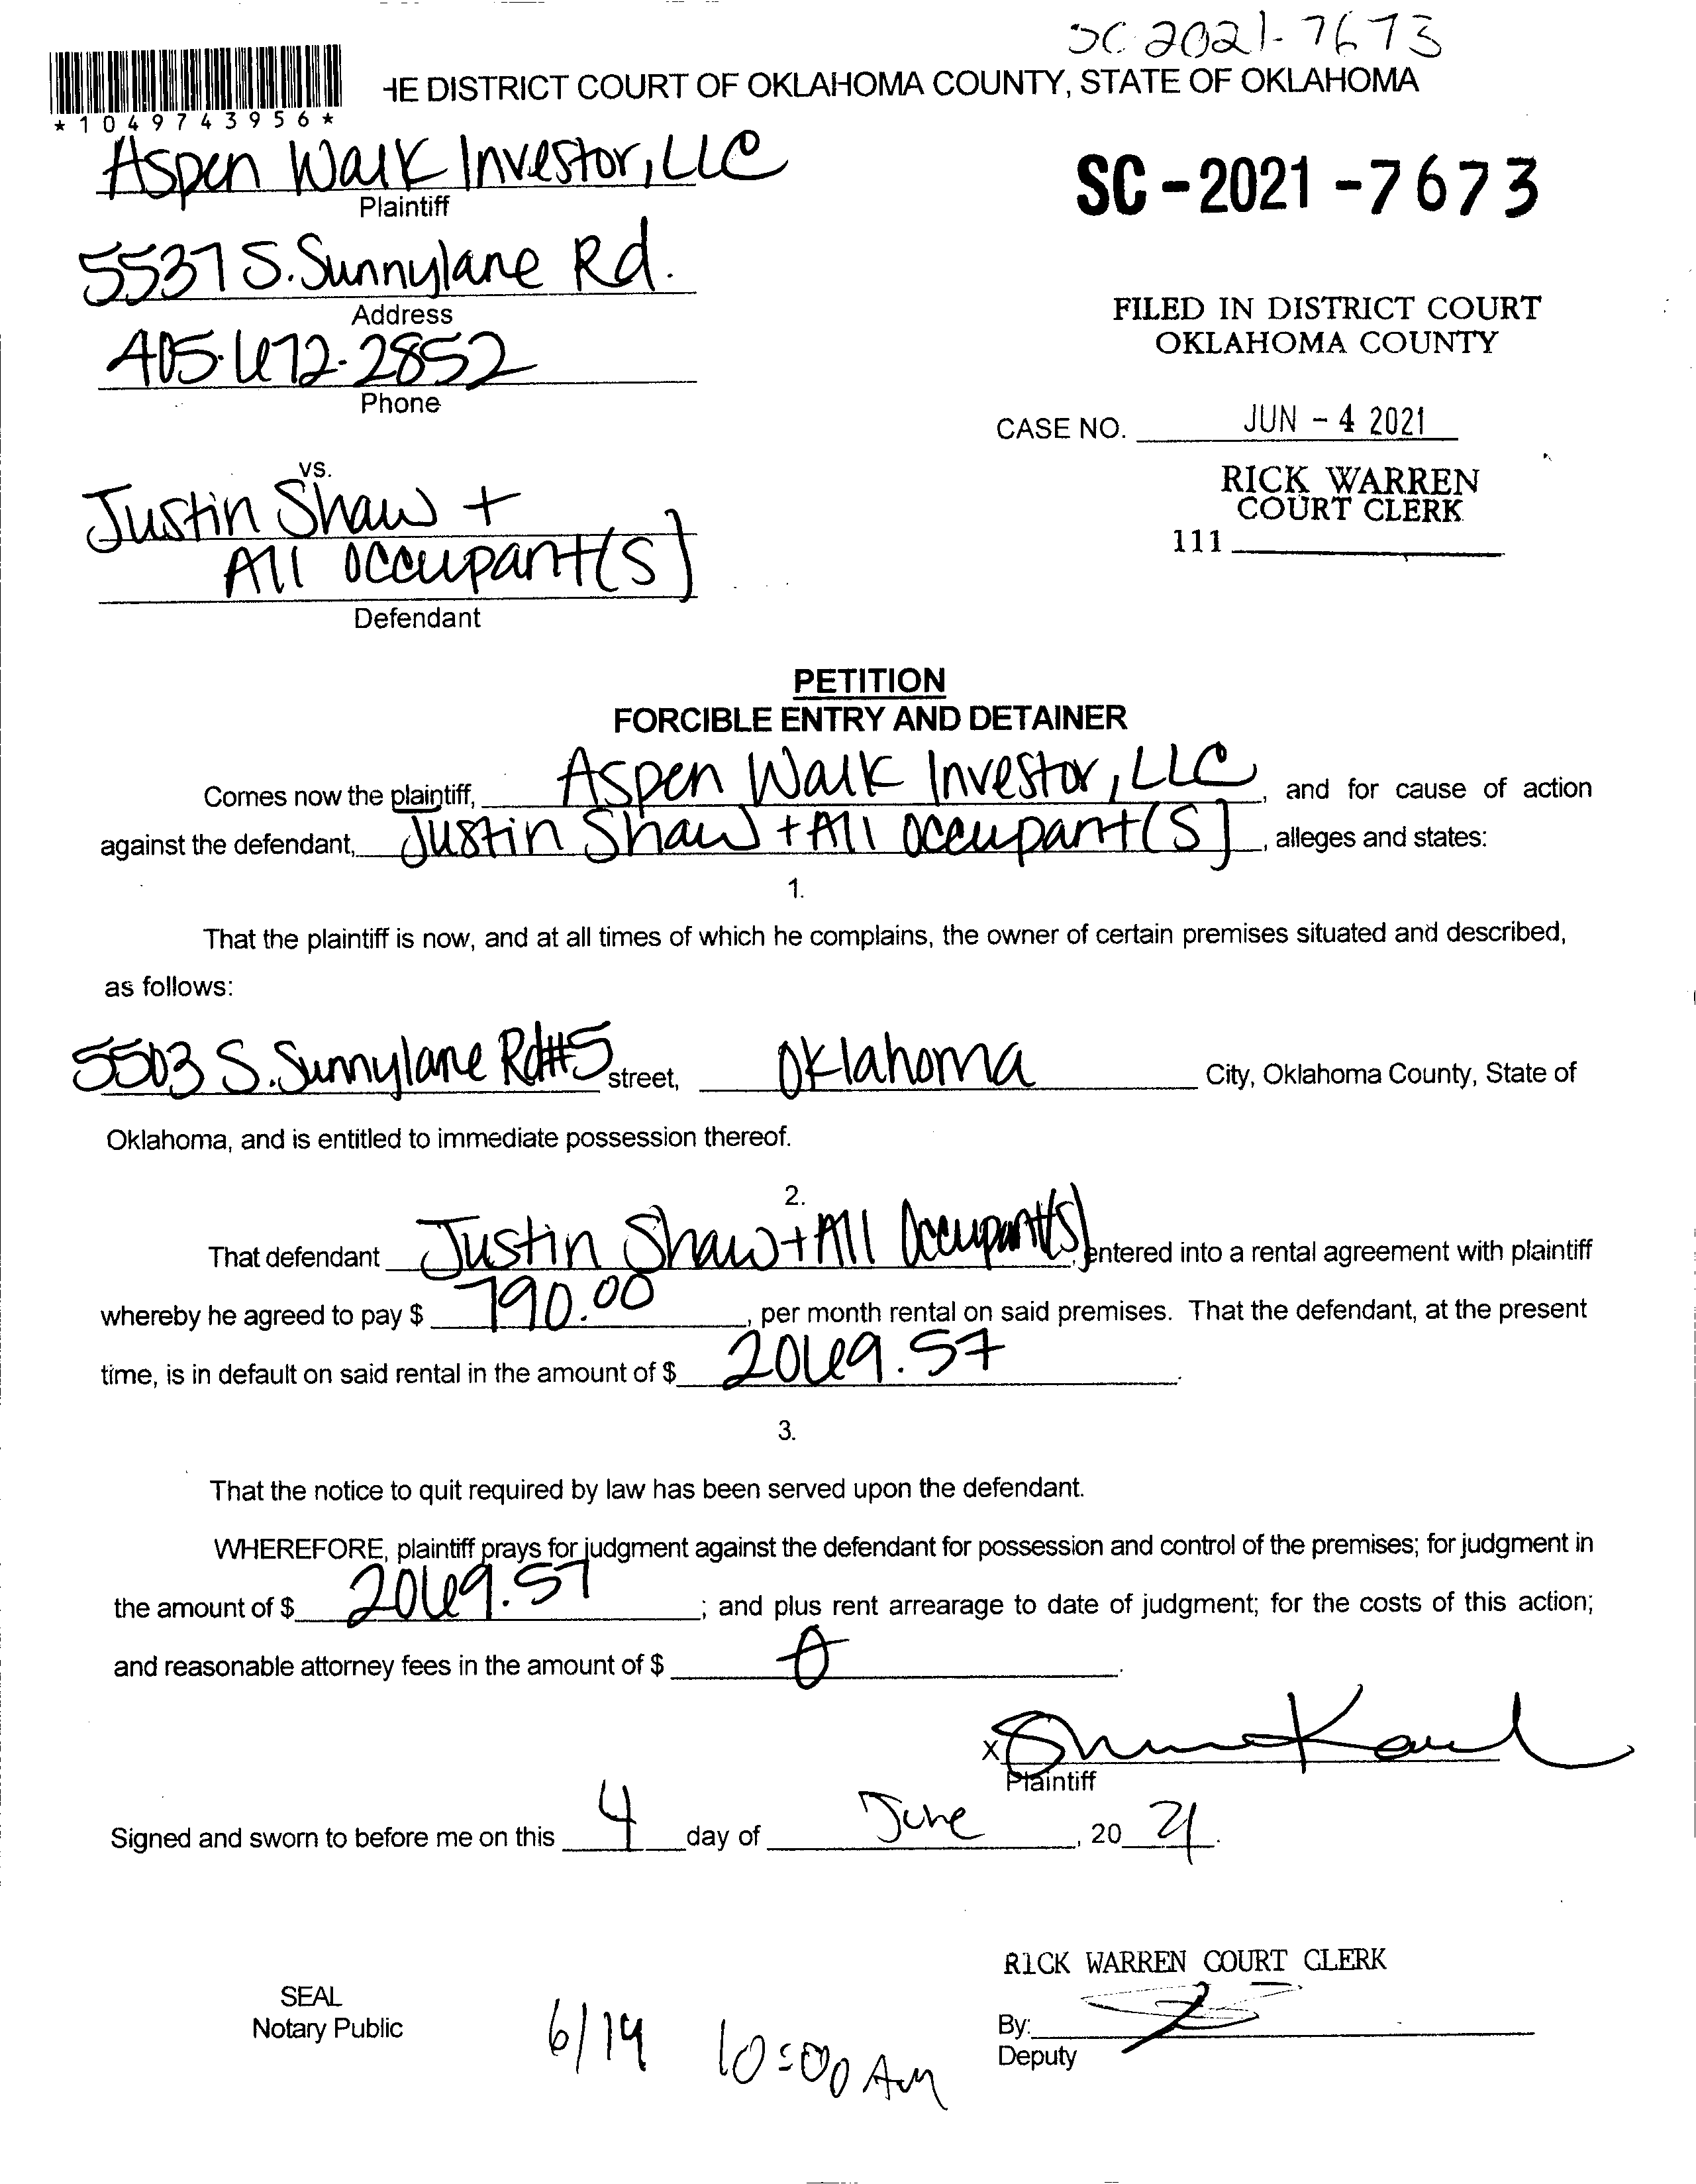 SC 2021-7673
HE DISTRICT COURT OF OKLAHOMA COUNTY, STATE OF OKLAHOMA
*1049743956*
Aspen Walk Investor, LLC
Plaintiff
SC-2021-7673
5537 S. Sunnylane Rd.
Address
FILED IN DISTRICT COURT
OKLAHOMA COUNTY
405-672-2852
Phone
CASE NO. JUN - 4 2021
vs.
RICK WARREN
COURT CLERK
111
Justin Shaw +
All Occupant(s)
Defendant
PETITION
FORCIBLE ENTRY AND DETAINER
Comes now the plaintiff, Aspen Walk Investor, LLC, and for cause of action
against the defendant, Justin Shaw + All Occupant(s), alleges and states:
1.
That the plaintiff is now, and at all times of which he complains, the owner of certain premises situated and described,
as follows:
5503 S. Sunnylane Rd #5 street, Oklahoma City, Oklahoma County, State of
Oklahoma, and is entitled to immediate possession thereof.
2.
That defendant Justin Shaw + All Occupant(s), entered into a rental agreement with plaintiff
whereby he agreed to pay $ 790.00, per month rental on said premises. That the defendant, at the present
time, is in default on said rental in the amount of $ 2069.57.
3.
That the notice to quit required by law has been served upon the defendant.
WHEREFORE, plaintiff prays for judgment against the defendant for possession and control of the premises; for judgment in
the amount of $ 2069.57; and plus rent arrearage to date of judgment; for the costs of this action;
and reasonable attorney fees in the amount of $ 0.
X
Plaintiff
Signed and sworn to before me on this 4 day of June, 20 21.
RICK WARREN COURT CLERK
SEAL
Notary Public
6/14 10:00 AM
By:
Deputy